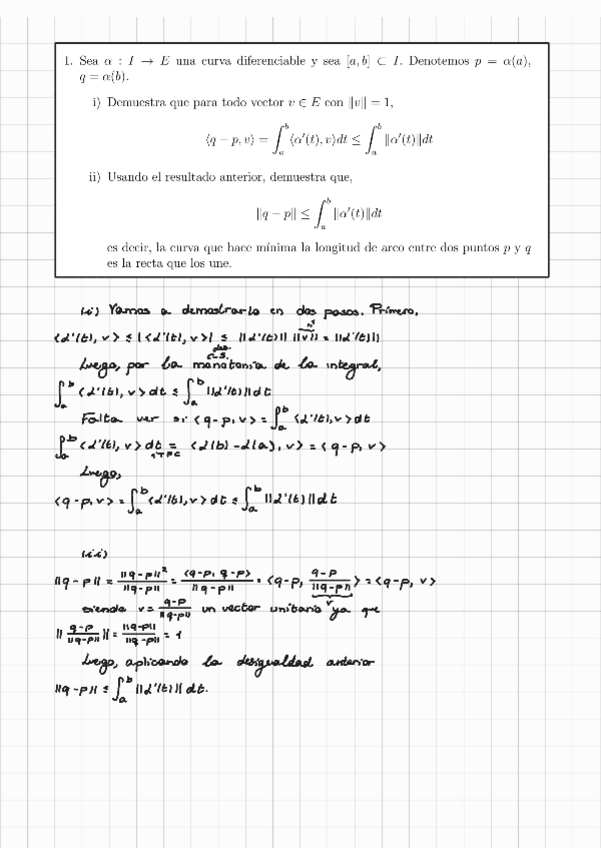 1. Sea α : I → E una curva diferenciable y sea [a, b] ⊂ I. Denotemos p = α(a),
q = α(b).
i) Demuestra que para todo vector v ∈ E con ‖v‖ = 1,
⟨q − p, v⟩ = ∫_a^b ⟨α'(t), v⟩dt ≤ ∫_a^b ‖α'(t)‖dt
ii) Usando el resultado anterior, demuestra que,
‖q − p‖ ≤ ∫_a^b ‖α'(t)‖dt
es decir, la curva que hace mínima la longitud de arco entre dos puntos p y q
es la recta que los une.
Vamos a demostrarlo en dos pasos. Primero,
<α'(t), v> ≤ |<α'(t), v>| ≤ ||α'(t)|| ||v|| = ||α'(t)||
C-S.
Luego, por la monotonía de la integral,
∫_a^b <α'(t), v> dt ≤ ∫_a^b ||α'(t)|| dt
Falta ver si <q-p, v> = ∫_a^b <α'(t), v> dt
∫_a^b <α'(t), v> dt = <α(b) - α(a), v> = <q-p, v>
Luego,
<q-p, v> = ∫_a^b <α'(t), v> dt ≤ ∫_a^b ||α'(t)|| dt
(ii)
||q-p|| = ||q-p||²/||q-p|| = <q-p, q-p>/||q-p|| = <q-p, (q-p)/||q-p||> = <q-p, v>
v
siendo v = (q-p)/||q-p|| un vector unitario ya que
||(q-p)/||q-p|||| = ||q-p||/||q-p|| = 1
Luego, aplicando la desigualdad anterior
||q-p|| ≤ ∫_a^b ||α'(t)|| dt.